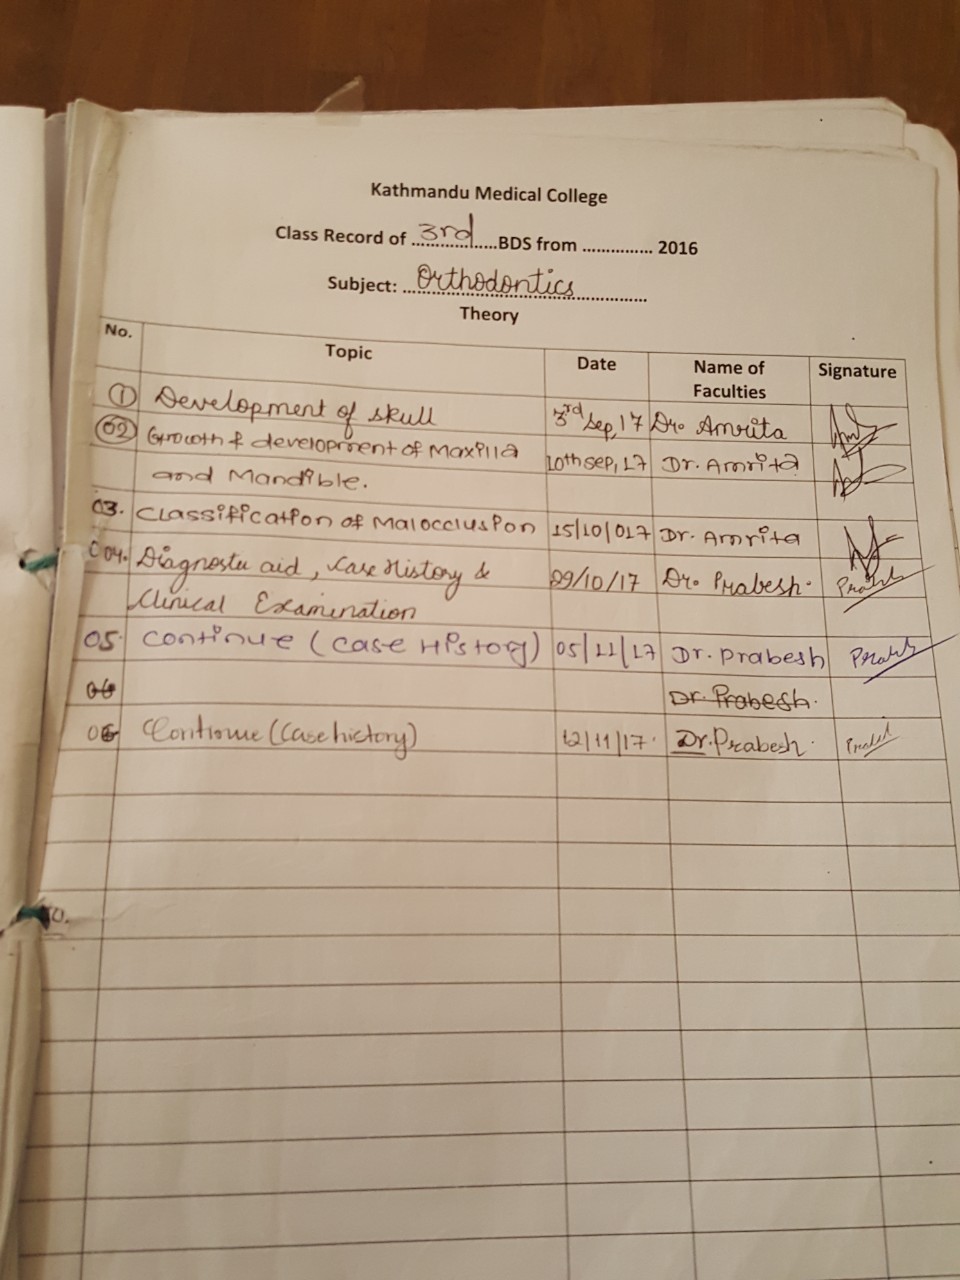 Kathmandu Medical College
Class Record of ...3rd......BDS from ............... 2016
Subject: ...Orthodontics..................
Theory
No. Topic Date Name of Faculties Signature
① Development of skull 3rd Sep, 17 Dr. Amrita
02 Growth & development of Maxilla 10th sep, 17 Dr. Amrita
and Mandible.
03. Classification of Malocclusion 15/10/017 Dr. Amrita
04. Diagnostic aid, Case History & 29/10/17 Dr. Prabesh. Prabesh
Clinical Examination
05. Continue (Case History) 05/11/17 Dr. Prabesh Prabesh
06 Dr. Prabesh.
06 Continue (Case history) 12/11/17. Dr. Prabesh. Prabesh